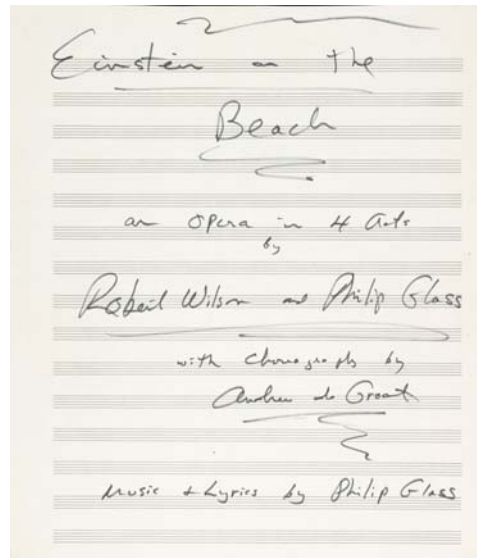 Einstein on the
Beach
an Opera in 4 Acts
by
Robert Wilson and Philip Glass
with Choreography by
Andrew de Groat
Music + Lyrics by Philip Glass